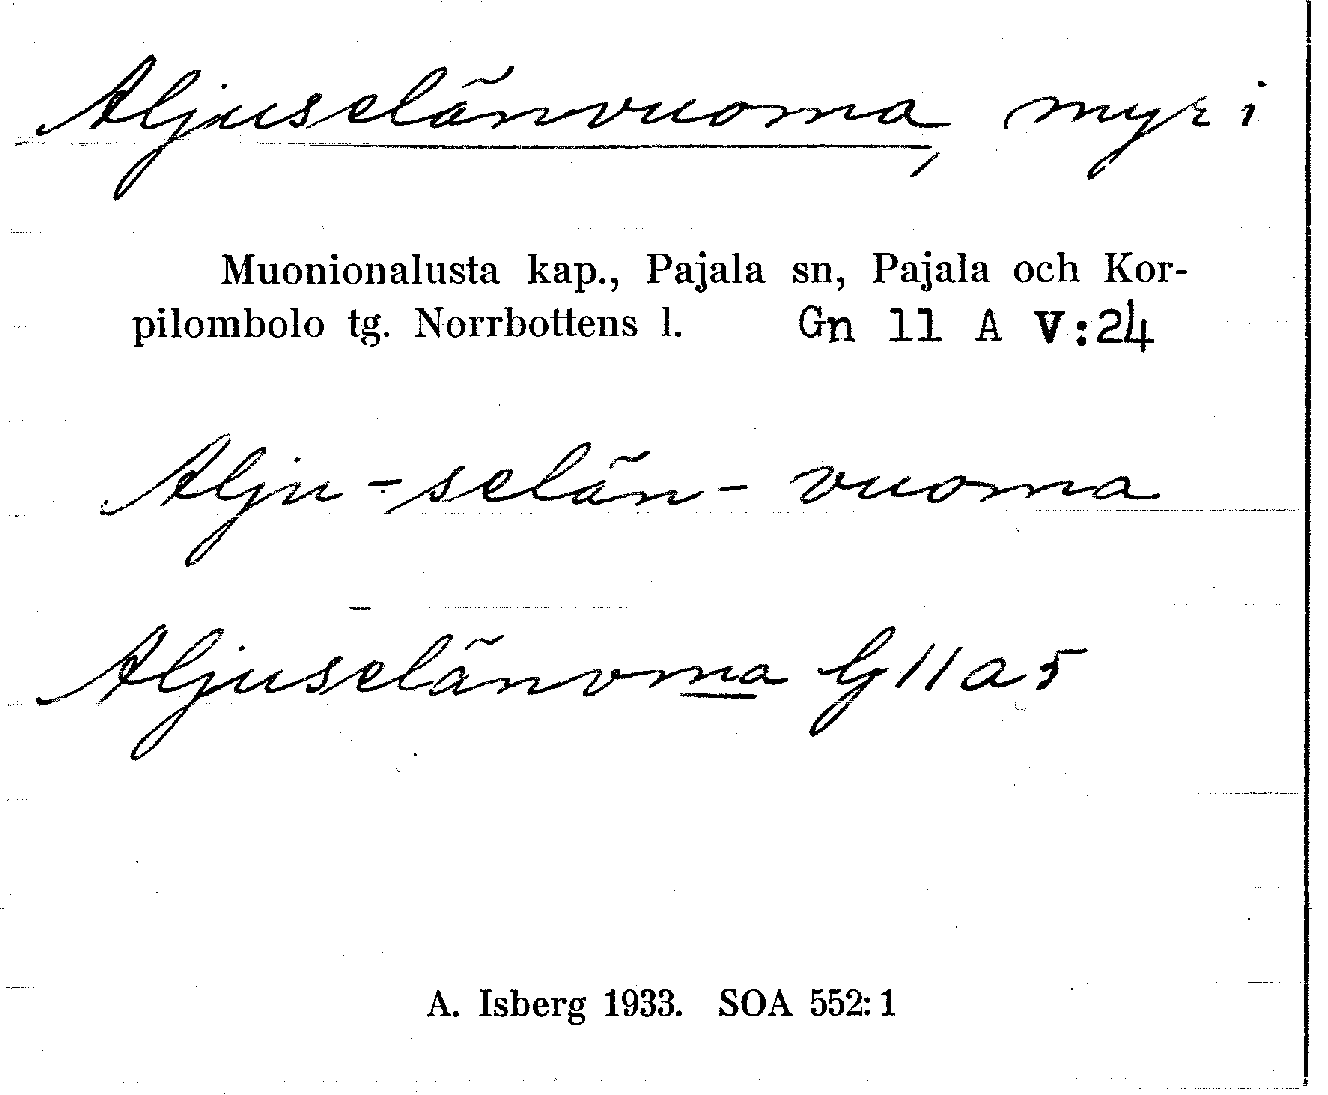 Aljuselänvuoma, myr i
Muonionalusta kap., Pajala sn, Pajala och Kor-
pilombolo tg. Norrbottens l. Gn 11 A V:24
Alju-selän-vuoma
Aljuselänvma G 11 a 5
A. Isberg 1933. SOA 552:1